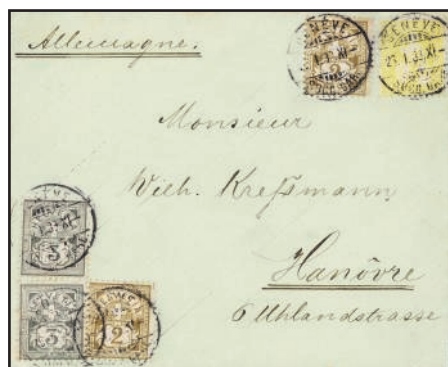 Allemagne.
GENÈVE
2
GENÈVE
23.1.
XI-
Monsieur
Wilh. Kreßmann
Hanôvre
6 Uhlandstrasse
5
5
2